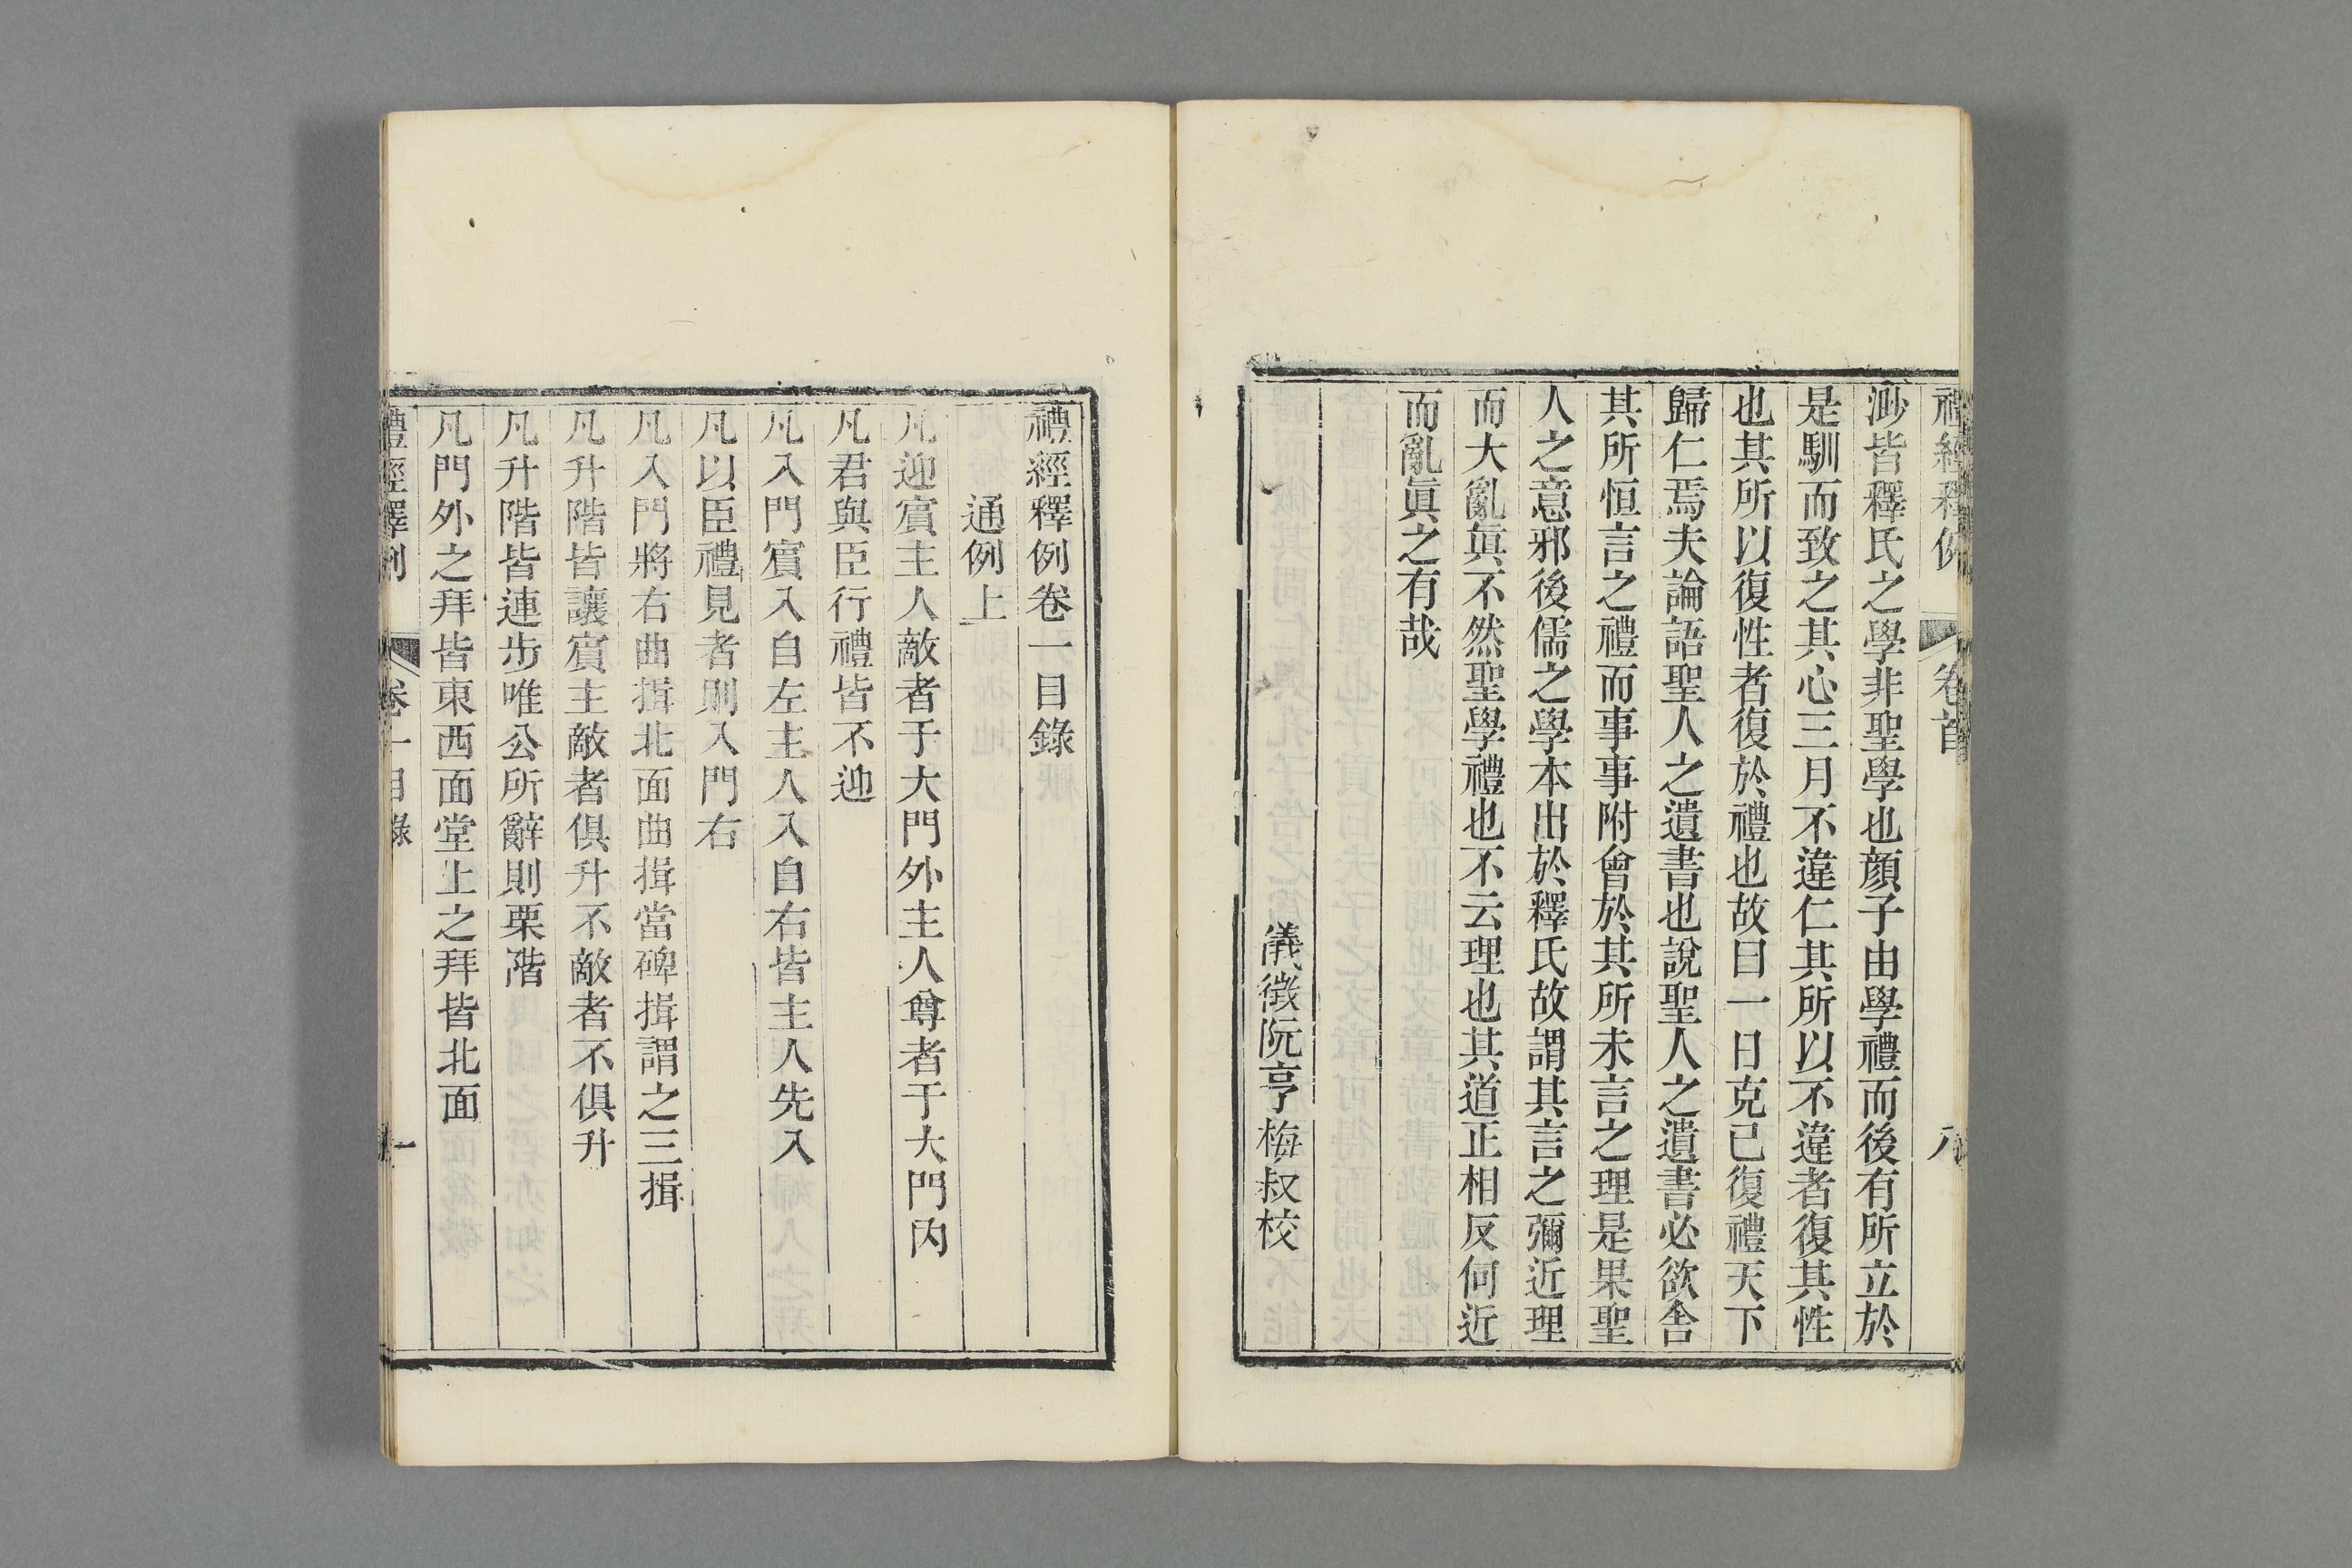 禮經釋例 卷首 八
渺皆釋氏之學非聖學也顏子由學禮而後有所立於
是馴而致之其心三月不違仁其所以不違者復其性
也其所以復性者復於禮也故曰一日克己復禮天下
歸仁焉夫論語聖人之遺書也說聖人之遺書必欲舍
其所恒言之禮而事事附會於其所未言之理是果聖
人之意邪後儒之學本出於釋氏故謂其言之彌近理
而大亂眞不然聖學禮也不云理也其道正相反何近
而亂眞之有哉
儀徵阮亨梅叔校
禮經釋例卷一目錄
通例上
凡迎賓主人敵者于大門外主人尊者于大門內
凡君與臣行禮皆不迎
凡入門賓入自左主人入自右皆主人先入
凡以臣禮見者則入門右
凡入門將右曲揖北面曲揖當碑揖謂之三揖
凡升階皆讓賓主敵者俱升不敵者不俱升
凡升階皆連步唯公所辭則栗階
凡門外之拜皆東西面堂上之拜皆北面
禮經釋例 卷一目錄 一